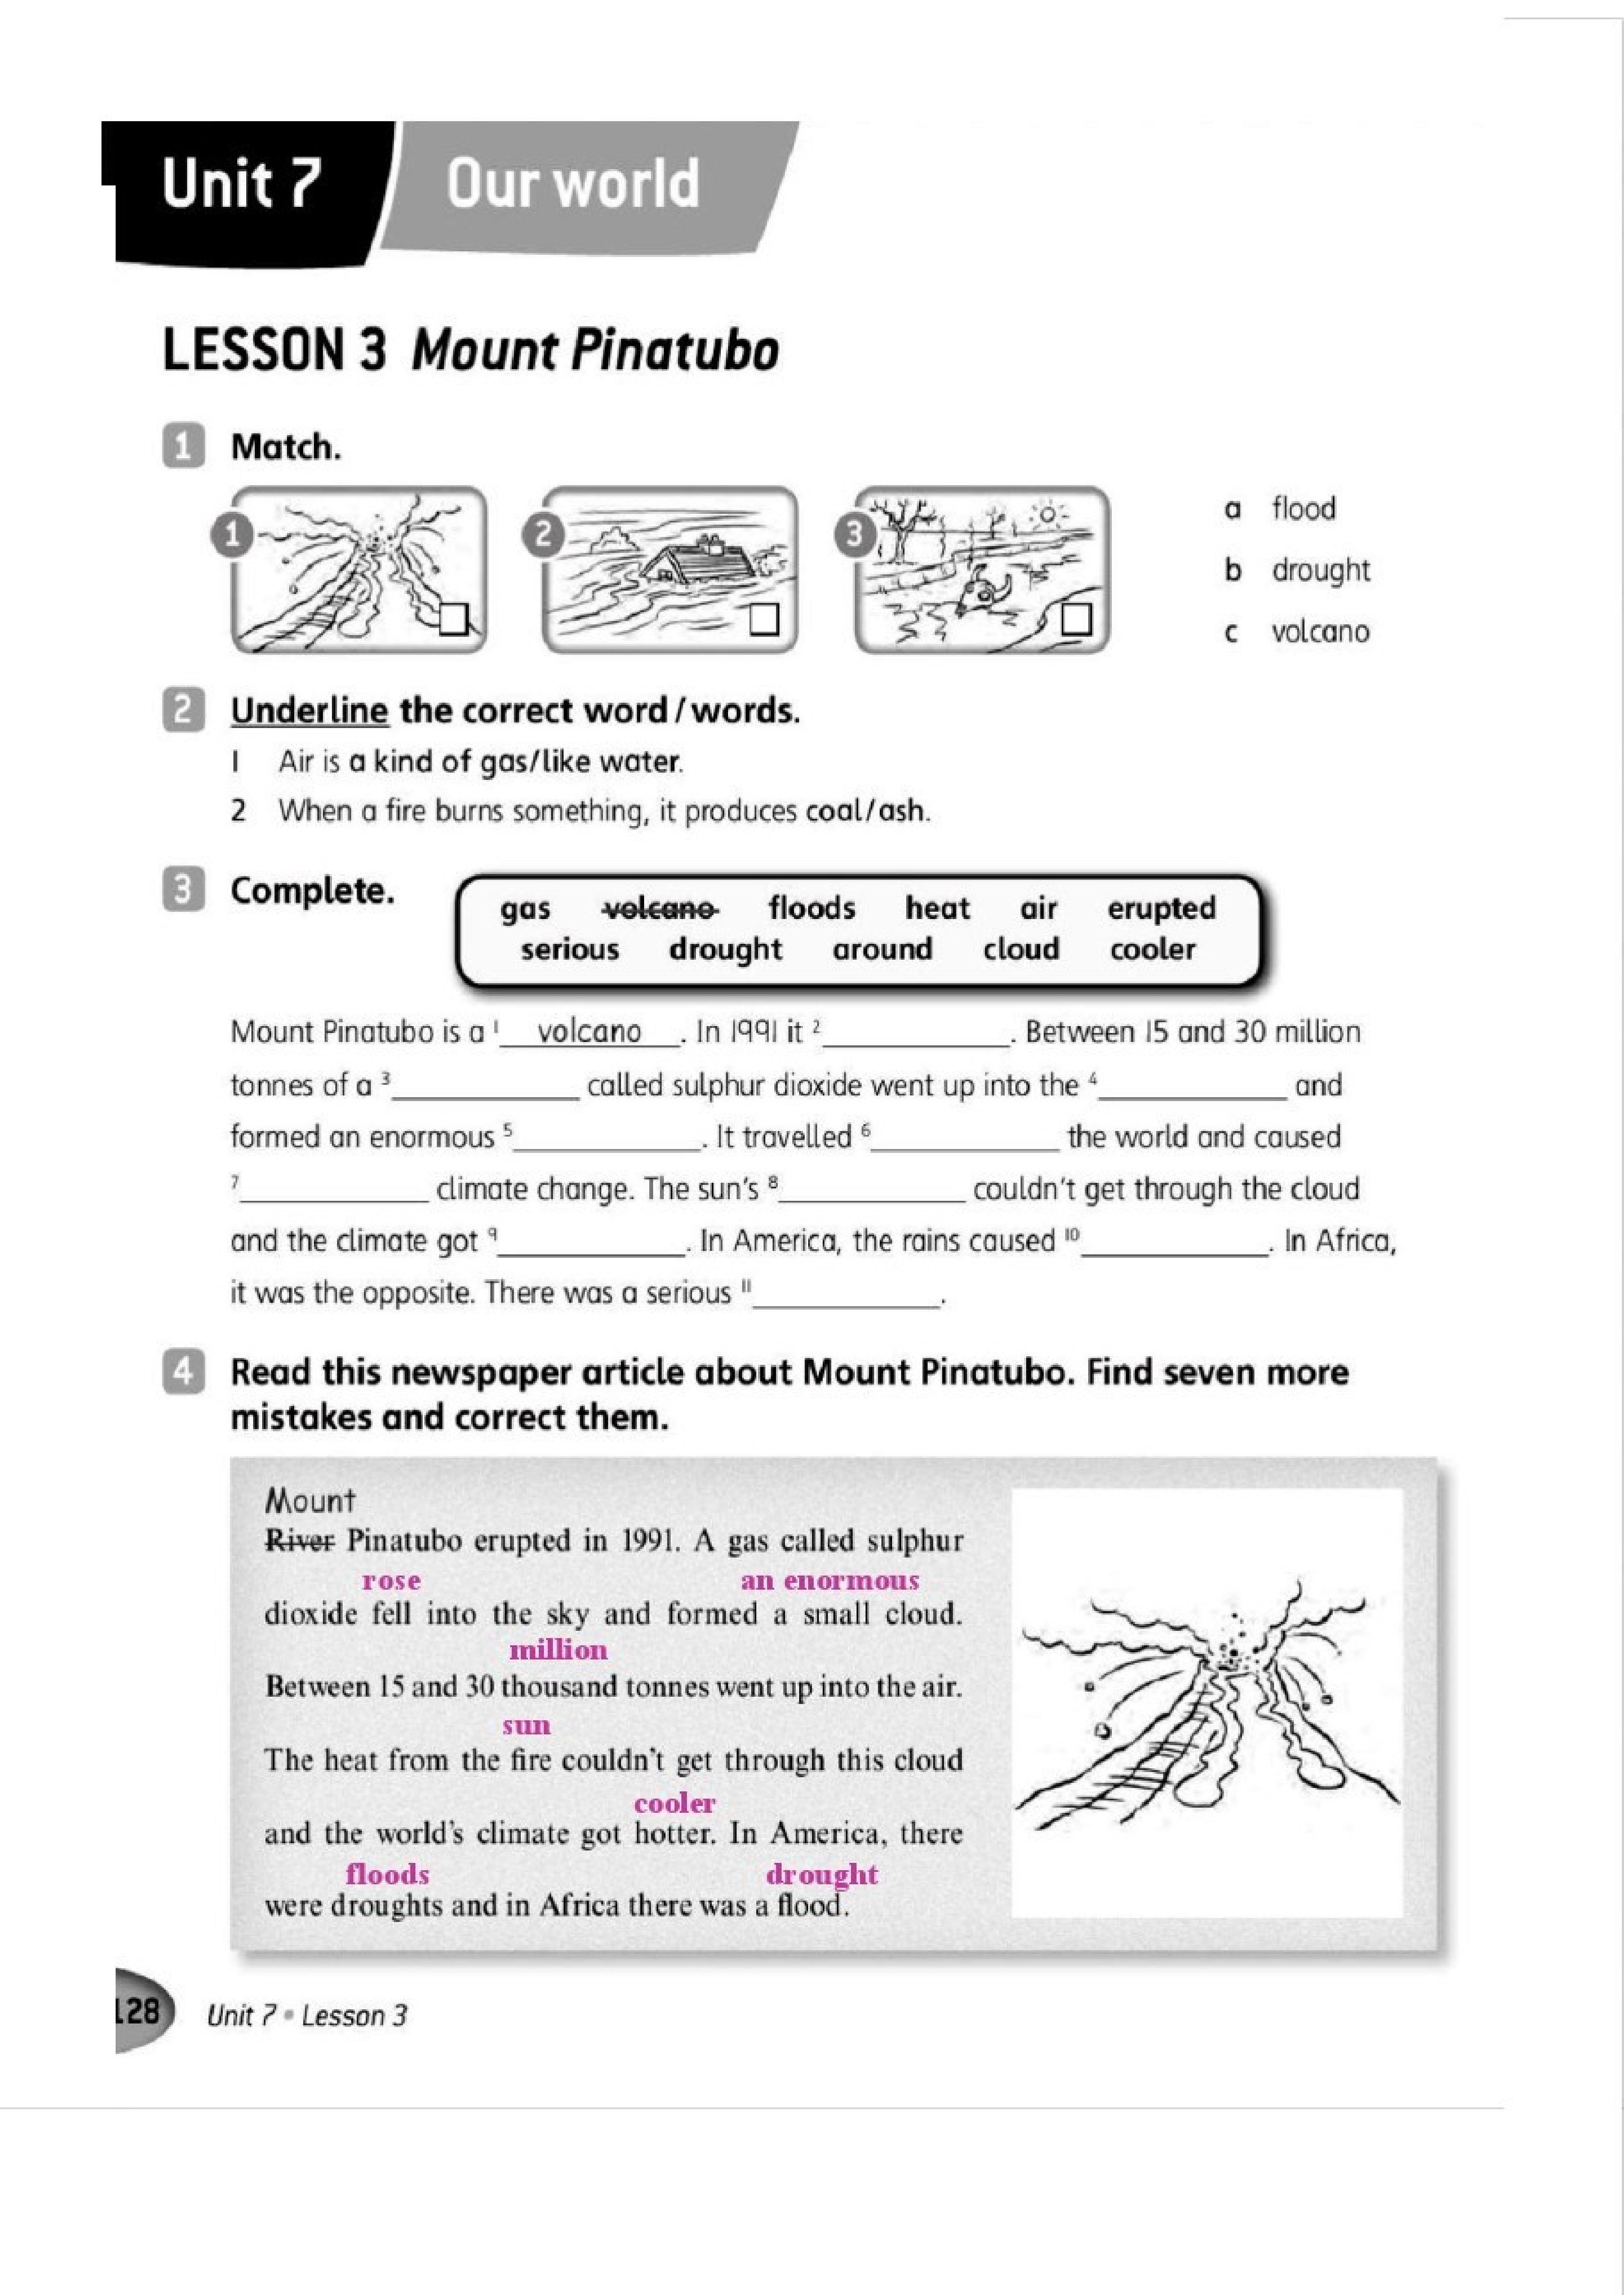 Unit 7 Our world
LESSON 3 Mount Pinatubo
1 Match.
1 2 3
a flood
b drought
c volcano
2 Underline the correct word/words.
1 Air is a kind of gas/like water.
2 When a fire burns something, it produces coal/ash.
3 Complete.
gas volcano floods heat air erupted
serious drought around cloud cooler
Mount Pinatubo is a 1 volcano. In 1991 it 2____________. Between 15 and 30 million
tonnes of a 3____________ called sulphur dioxide went up into the 4____________ and
formed an enormous 5____________. It travelled 6____________ the world and caused
7____________ climate change. The sun's 8____________ couldn't get through the cloud
and the climate got 9____________. In America, the rains caused 10____________. In Africa,
it was the opposite. There was a serious 11____________.
4 Read this newspaper article about Mount Pinatubo. Find seven more
mistakes and correct them.
Mount
River Pinatubo erupted in 1991. A gas called sulphur
rose an enormous
dioxide fell into the sky and formed a small cloud.
million
Between 15 and 30 thousand tonnes went up into the air.
sun
The heat from the fire couldn't get through this cloud
cooler
and the world's climate got hotter. In America, there
floods drought
were droughts and in Africa there was a flood.
128 Unit 7 • Lesson 3